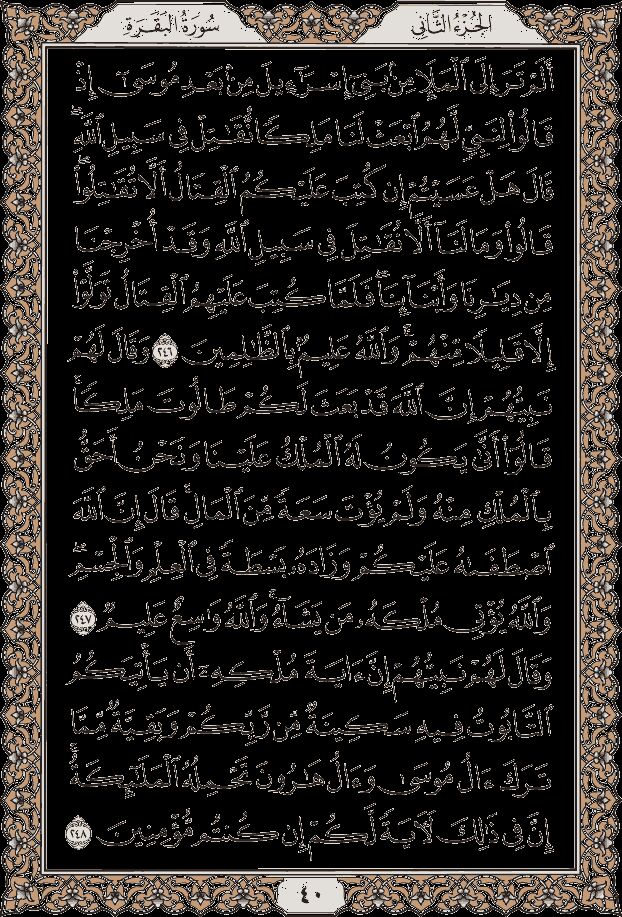 الجُزْءُ الثَّانِي
سُورَةُ البَقَرَةِ
أَلَمْ تَرَ إِلَى ٱلْمَلَإِ مِنۢ بَنِىٓ إِسْرَٰٓءِيلَ مِنۢ بَعْدِ مُوسَىٰٓ إِذْ
قَالُوا۟ لِنَبِىٍّ لَّهُمُ ٱبْعَثْ لَنَا مَلِكًا نُّقَٰتِلْ فِى سَبِيلِ ٱللَّهِ ۖ
قَالَ هَلْ عَسَيْتُمْ إِن كُتِبَ عَلَيْكُمُ ٱلْقِتَالُ أَلَّا تُقَٰتِلُوا۟ ۖ
قَالُوا۟ وَمَا لَنَآ أَلَّا نُقَٰتِلَ فِى سَبِيلِ ٱللَّهِ وَقَدْ أُخْرِجْنَا
مِن دِيَٰرِنَا وَأَبْنَآئِنَا ۖ فَلَمَّا كُتِبَ عَلَيْهِمُ ٱلْقِتَالُ تَوَلَّوْا۟
إِلَّا قَلِيلًا مِّنْهُمْ ۗ وَٱللَّهُ عَلِيمٌۢ بِٱلظَّٰلِمِينَ ٢٤٦ وَقَالَ لَهُمْ
نَبِيُّهُمْ إِنَّ ٱللَّهَ قَدْ بَعَثَ لَكُمْ طَالُوتَ مَلِكًا ۚ
قَالُوٓا۟ أَنَّىٰ يَكُونُ لَهُ ٱلْمُلْكُ عَلَيْنَا وَنَحْنُ أَحَقُّ
بِٱلْمُلْكِ مِنْهُ وَلَمْ يُؤْتَ سَعَةً مِّنَ ٱلْمَالِ ۚ قَالَ إِنَّ ٱللَّهَ
ٱصْطَفَىٰهُ عَلَيْكُمْ وَزَادَهُۥ بَسْطَةً فِى ٱلْعِلْمِ وَٱلْجِسْمِ ۖ
وَٱللَّهُ يُؤْتِى مُلْكَهُۥ مَن يَشَآءُ ۚ وَٱللَّهُ وَٰسِعٌ عَلِيمٌ ٢٤٧
وَقَالَ لَهُمْ نَبِيُّهُمْ إِنَّ ءَايَةَ مُلْكِهِۦٓ أَن يَأْتِيَكُمُ
ٱلتَّابُوتُ فِيهِ سَكِينَةٌ مِّن رَّبِّكُمْ وَبَقِيَّةٌ مِّمَّا
تَرَكَ ءَالُ مُوسَىٰ وَءَالُ هَٰرُونَ تَحْمِلُهُ ٱلْمَلَٰٓئِكَةُ ۚ
إِنَّ فِى ذَٰلِكَ لَءَايَةً لَّكُمْ إِن كُنتُم مُّؤْمِنِينَ ٢٤٨
٤٠